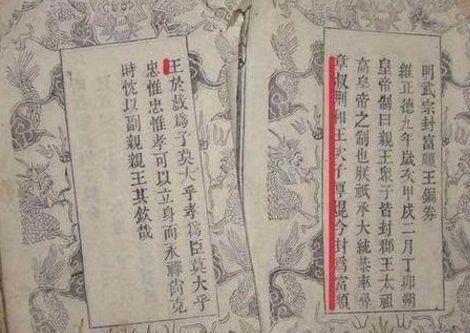 明武宗封富順王錫券
維正德九年歲次甲戌二月丁卯朔
皇帝制曰親王衆子皆封郡王太祖
高皇帝之制也朕祇承大統恭率彝
章叔荆和王次子厚焜今封爲富順
王於戲爲子莫大乎孝爲臣莫大乎
忠惟忠惟孝可以立身而永尚克
時忱以副親親王其欽哉